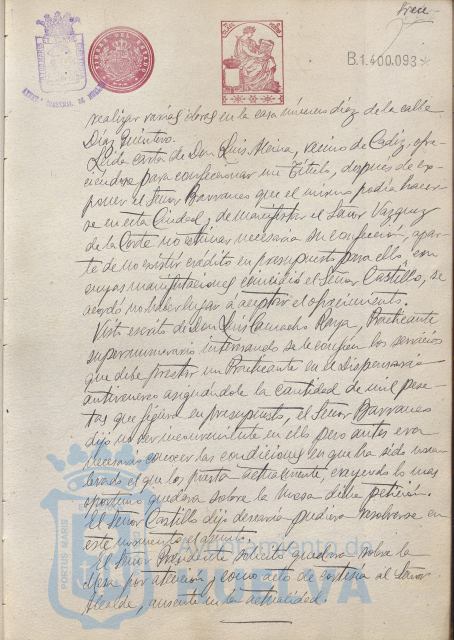 B.1.400.093*
realizar varias obras en la casa número diez de la calle
Díaz Quintero.
Leida carta de Don Luis Moira, vecino de Cadiz, ofre-
ciendose para confeccionar un Título, después de ex-
poner el Señor Barranco que el mismo podia hacer-
se en esta Ciudad, de manifestar el Señor Vazquez
de la Corte no estimar necesaria su confección, apar-
te de no existir crédito en presupuesto para ello, con
cuyas manifestaciones coincidió el Señor Castillo, se
acordó no haber lugar a aceptar el ofrecimiento.
Visto escrito de Don Luis Camacho Raya, Practicante
supernumerario interesando se le confien los servicios
que debe prestar un Practicante en el dispensario
antivenereo asignándole la cantidad de mil pese-
tas que figura en presupuesto, el Señor Barranco
dijo no ver inconveniente en ello pero antes era
necesario conocer las condiciones en que ha sido
el que los presta actualmente, creyendo lo mas
oportuno quedara sobre la mesa dicha petición.
El Señor Castillo dijo desearia pudiera resolverse en
este momento el asunto.
El Señor Presidente solicitó quedara sobre la
Mesa por atención y como acto de cortesia al Señor
Alcalde, ausente en la actualidad.
PORTUS MARIS
Ayuntamiento de
HUELVA